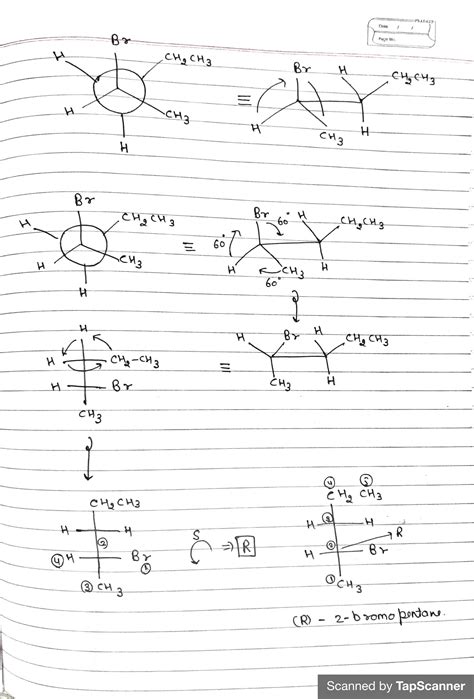 Date / /
Page No.
Br
H
CH2CH3
H
CH3
H
≡
Br
H
CH2CH3
H
CH3
H
Br
H
CH2CH3
H
CH3
H
≡
Br
60°
H
CH2CH3
60°
H
CH3
H
60°
H
H
CH2-CH3
H
Br
CH3
≡
H
Br
H
CH2CH3
CH3
H
CH2CH3
H
H
②
④ H
Br
①
③ CH3
S
⇒ R
④ ⑤
CH2 CH3
H
③
H
R
H
②
Br
①
CH3
(R) - 2-bromopentane.
Scanned by TapScanner